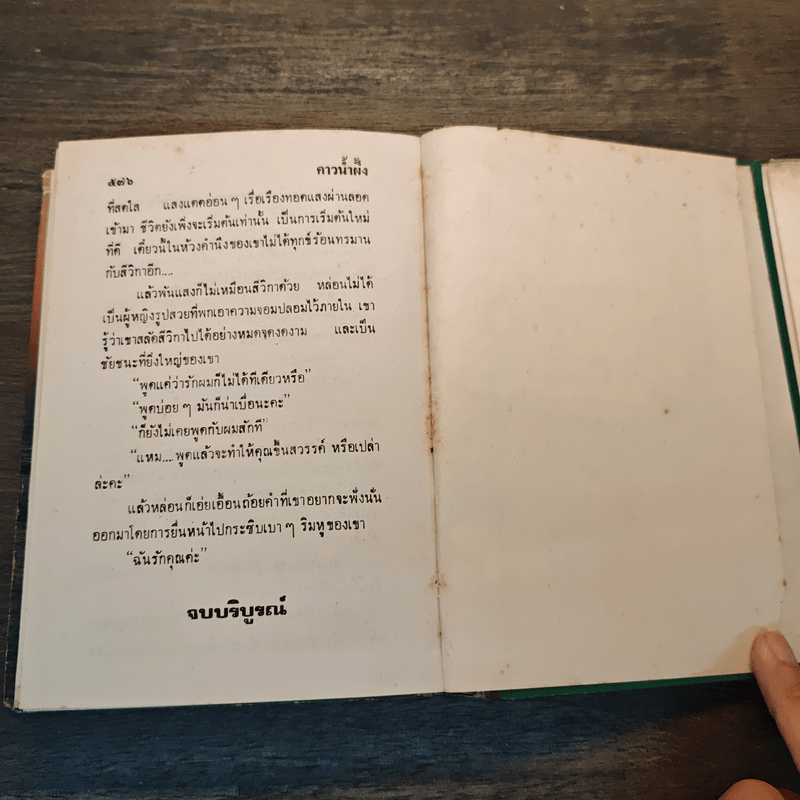 ๕๗๖ คาวน้ำผึ้ง
ที่สดใส แสงแดดอ่อน ๆ เรื่อเรืองทอดแสงผ่านลอด
เข้ามา ชีวิตยังเพิ่งจะเริ่มต้นเท่านั้น เป็นการเริ่มต้นใหม่
ที่ดี เดี๋ยวนี้ในห้วงคำนึงของเขาไม่ได้ทุกข์ร้อนทรมาน
กับสีวิกาอีก....
แล้วพันแสงก็ไม่เหมือนสีวิกาด้วย หล่อนไม่ได้
เป็นผู้หญิงรูปสวยที่พกเอาความจอมปลอมไว้ภายใน เขา
รู้ว่าเขาสลัดสีวิกาไปได้อย่างหมดจดงดงาม และเป็น
ชัยชนะที่ยิ่งใหญ่ของเขา
“พูดแค่ว่ารักผมก็ไม่ได้ทีเดียวหรือ”
“พูดบ่อย ๆ มันก็น่าเบื่อนะคะ”
“ก็ยังไม่เคยพูดกับผมสักที”
“แหม....พูดแล้วจะทำให้คุณขึ้นสวรรค์ หรือเปล่า
ล่ะคะ”
แล้วหล่อนก็เอ่ยเอื้อนถ้อยคำที่เขาอยากจะฟังนั่น
ออกมาโดยการยื่นหน้าไปกระซิบเบา ๆ ริมหูของเขา
“ฉันรักคุณค่ะ”
จบบริบูรณ์